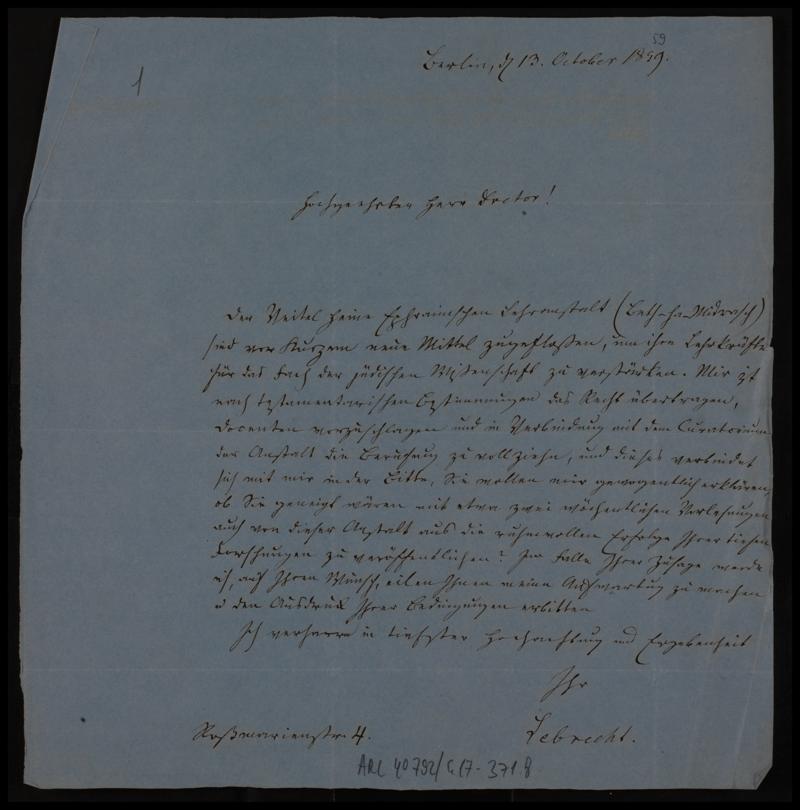 59
Berlin, d 13. October 1859.
1
Hochgeehrter Herr Doctor!
Der Veitel Heine Ephraimschen Lehranstalt (Beth-ha-Midrasch)
sind vor Kurzem neue Mittel zugeflossen, um ihre Lehrkräfte
für das Fach der jüdischen Wissenschaft zu verstärken. Mir ist
nach testamentarischen Bestimmungen das Recht übertragen,
Docenten vorzuschlagen und in Verbindung mit dem Curatorium
der Anstalt die Berufung zu vollziehn, und dieses verbindet
sich mit mir in der Bitte, Sie wollen mir gewogentlich erklären,
ob Sie geneigt wären mit etwa zwei wöchentlichen Vorlesungen
auch von dieser Anstalt aus die ruhmvollen Erfolge Ihrer tiefen
Forschungen zu veröffentlichen? Im Falle Ihrer Zusage werde
ich, auf Ihren Wunsch, eilen Ihnen meine Aufwartung zu machen
u den Ausdruck Ihrer Bedingungen erbitten
Ich verharre in tiefster Hochachtung und Ergebenheit
Ihr
Lebrecht.
Roßmarienstr. 4.
ARC 40792/G17-371.8